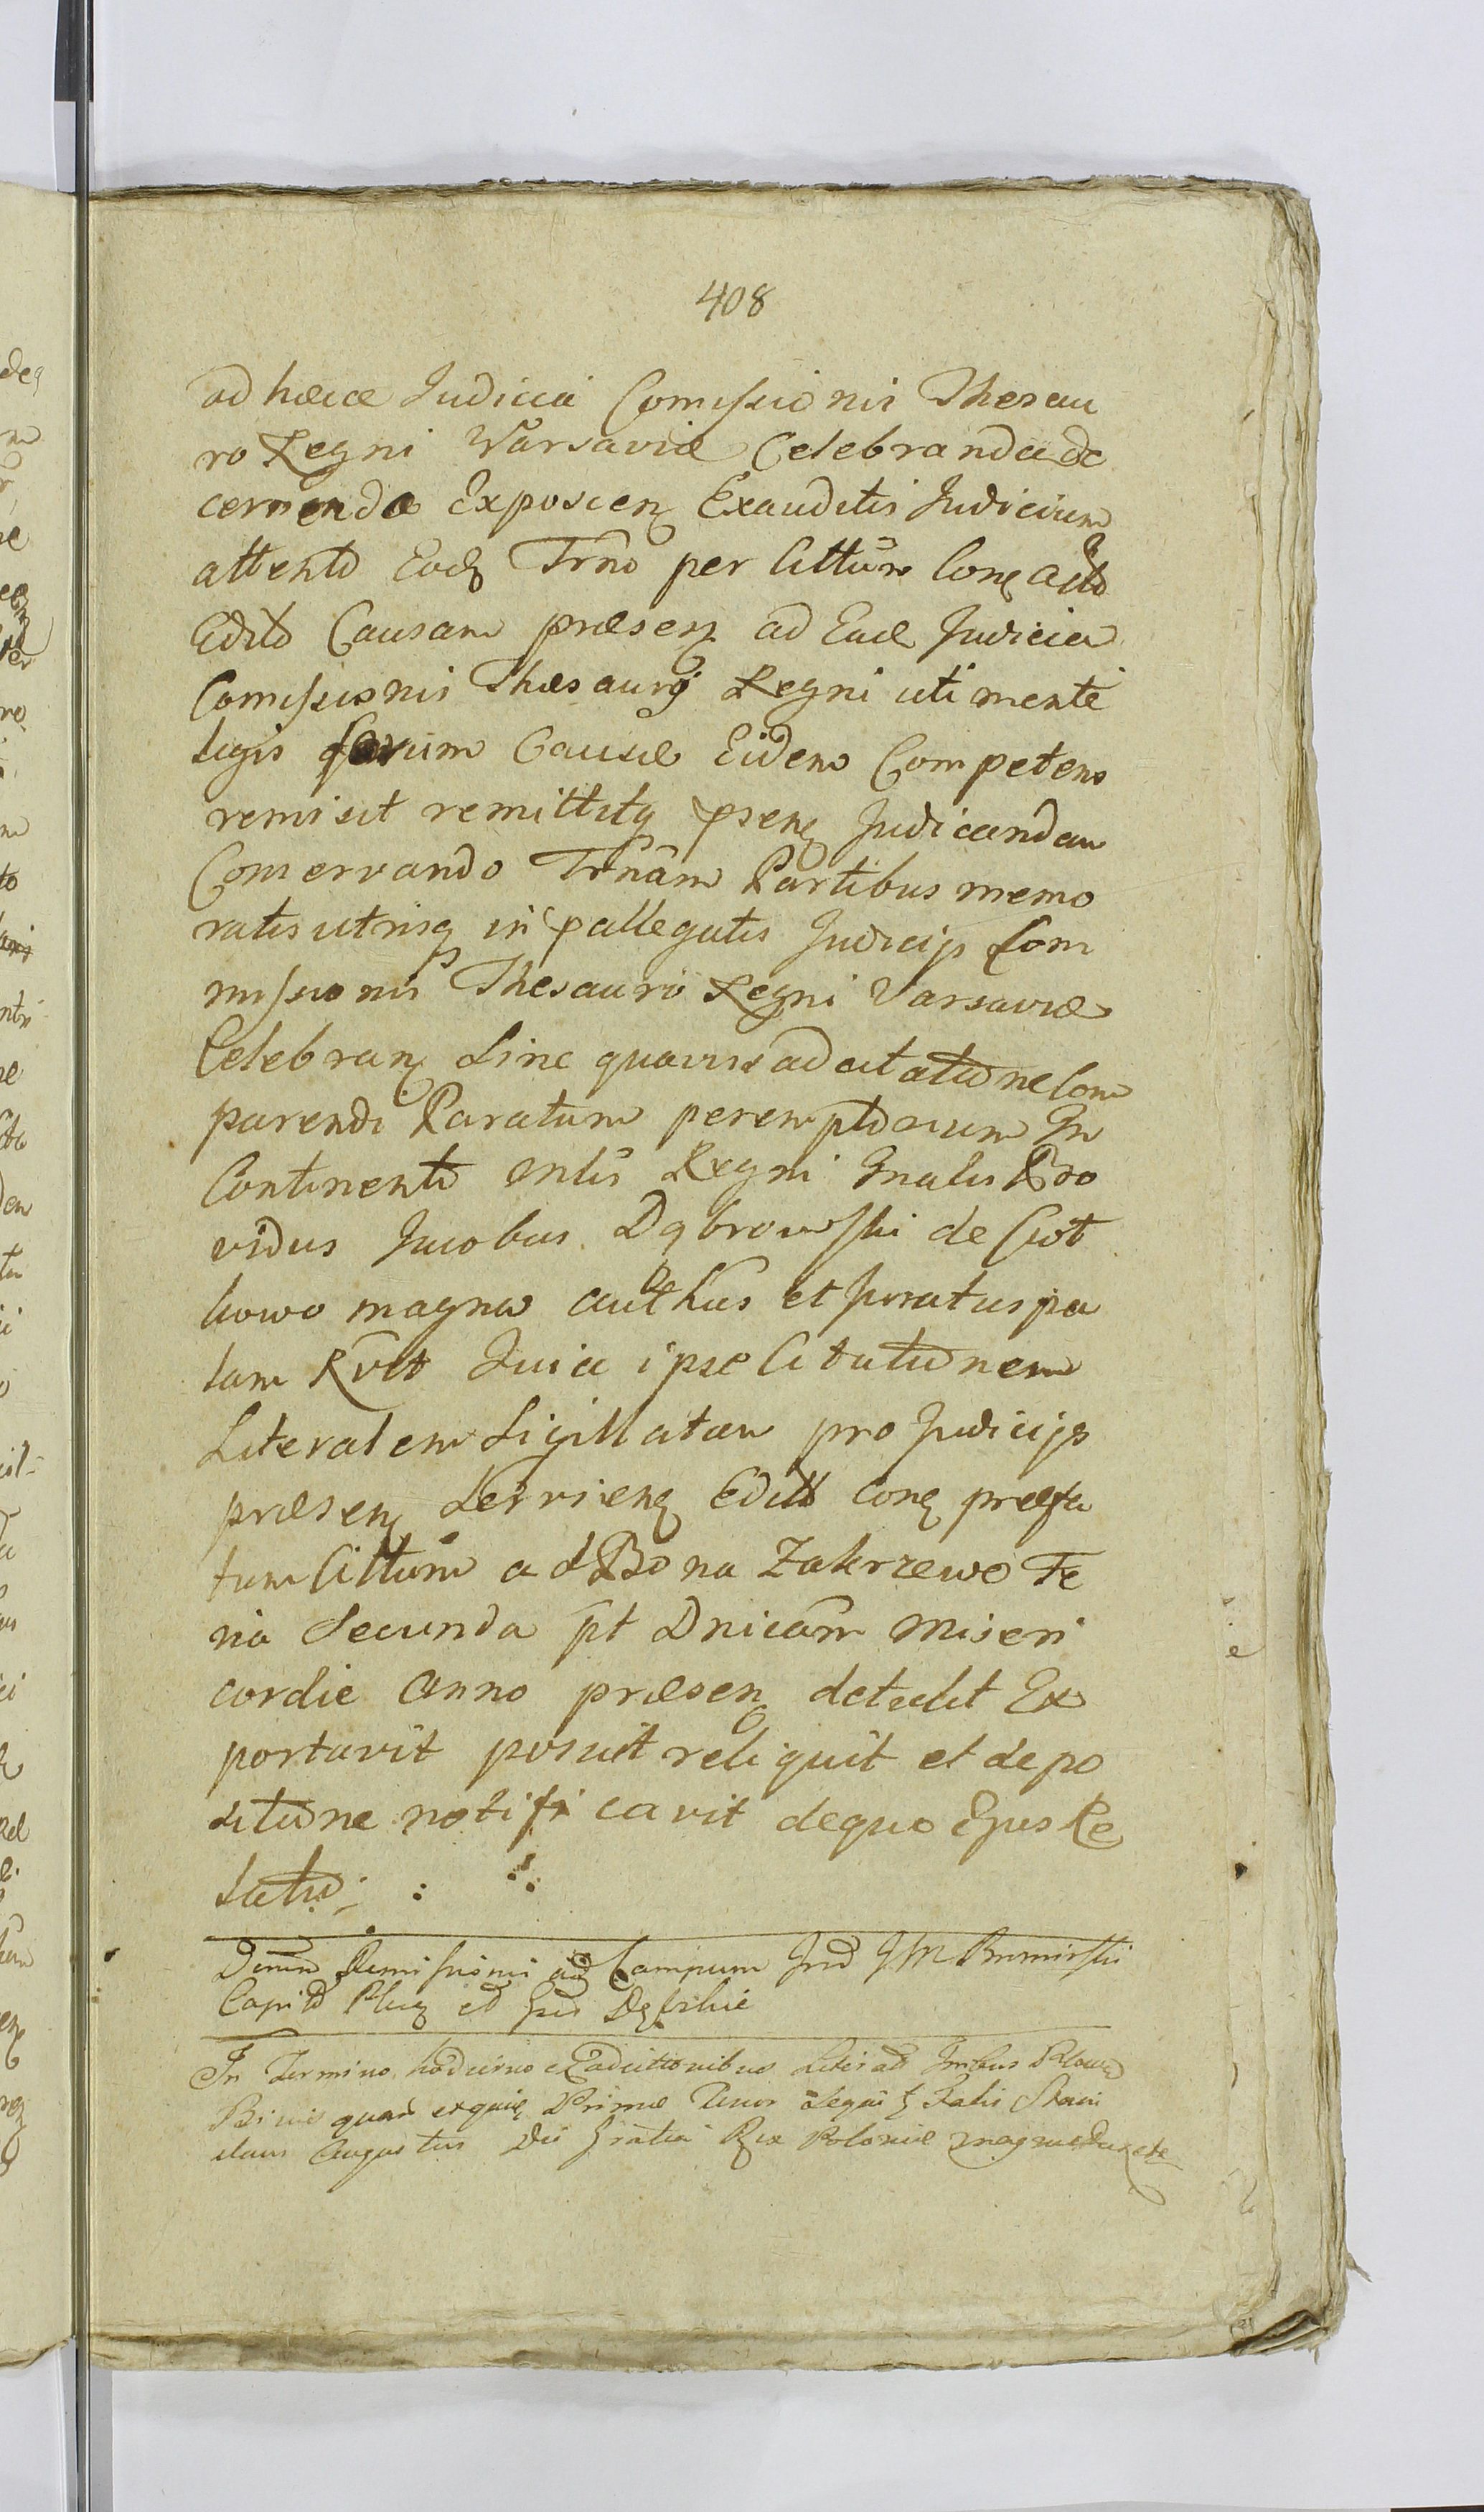 408
ad hæce Judicia Comissionis Thesau
ro Regni Varsaviæ Celebranda de
cernenda Exposcen Exauditis Judicium
attento Eod Trno per Cittum Conq acto
Edito Causam præsen ad Eace Judicia
Comissionis Thesaurj Regni uti mente
legis forum Causæ Eidem Competens
remisit remittitq psenq Judicandam
Conservando Trnam Partibus memo
ratis utrisq in pallegatis Judicijs Com
missionis Thesauri Regni Varsaviæ
Celebran Sine quavis adcitatione Com
parendi Paratum peremptorium In
Continenti Mnlis Regni Gnalis Pro
vidus Jacobus Dąbrowski de Ciot
kowo magna authus et juratus pa
lam Rvit Quia ipse Citationem
Literalem Sigillatam pro Judicijs
præsen Servien Edit Conq præfa
tum Cittum ad Bona Zakrzewo Fe
ria Secunda pt Dnicam Miseri
cordie Anno præsen detulit Ex
portavit posuit reliquit et depo
sitione notificavit dequo Ejus Re
latio
Remissionis ad Campum
Capit Ploc et
In Termino hodierno
Primæ Tenor Talis Stani
slaus Augustus Dei Gratia Rex Poloniæ magnus Dux etc